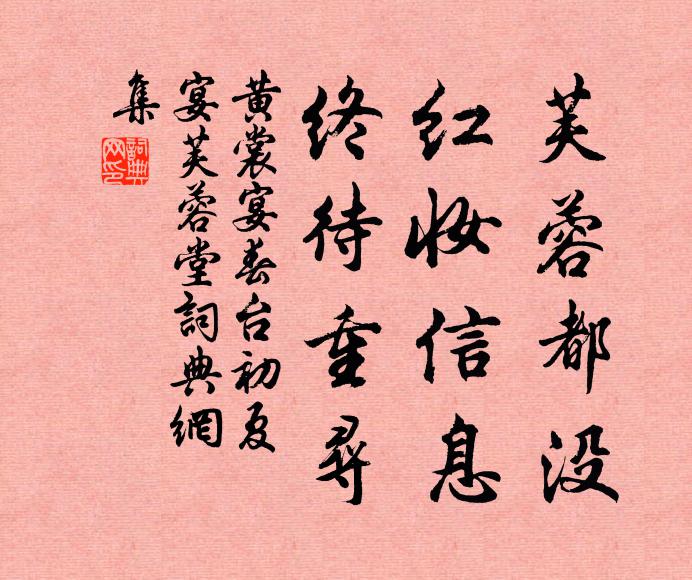 芙蓉都没
红妆信息
终待重寻
黄裳宴春台初夏
宴芙蓉堂詞典網
集
詞典网印